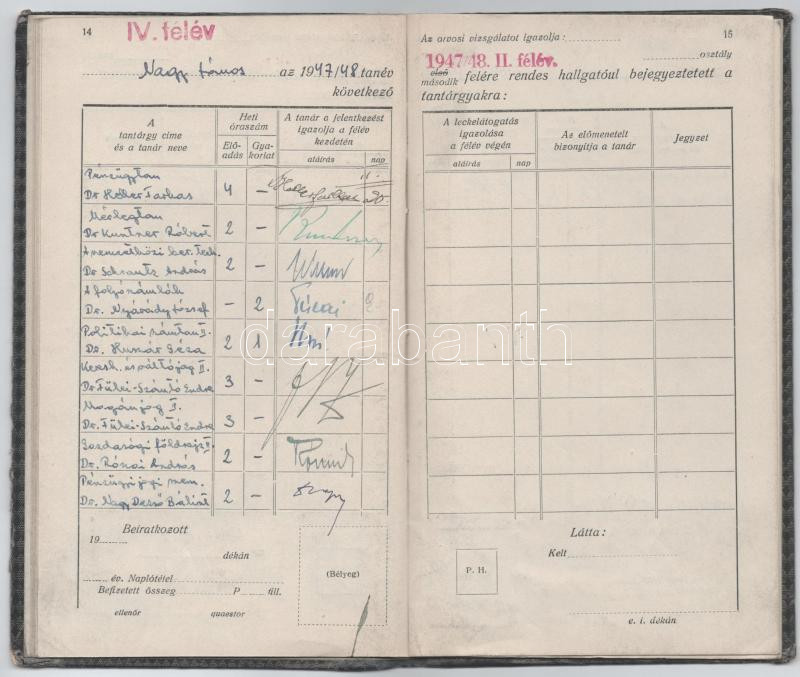 14
IV. félév
Nagy János az 1947/48 tanév
következő
A
tantárgy címe
és a tanár neve
Heti
óraszám
Elő-
adás
Gya-
korlat
A tanár a jelentkezést
igazolja a félév
kezdetén
aláírás
nap
Pénzügytan
Dr Heller Farkas
4 —
Mérlegtan
Dr Kuntner Róbert
2 —
A nemzetközi ker. techn.
Dr Schrantz András
2 —
A folyószámlák
Dr. Nyárády József
— 2
Politikai számtan II.
Dr. Huszár Géza
2 1
Keresk. és váltójog II.
Dr. Fülei-Szántó Endre
3 —
Magánjog II.
Dr. Fülei-Szántó Endre
3 —
Gazdasági földrajz II.
Dr. Rózsai András
2 —
Pénzügyi jogi
Dr. Nagy Dezső Bálint
2 —
Beiratkozott
19
dékán
év. Naplótétel
Befizetett összeg P fill.
ellenőr quaestor
(Bélyeg)
Az orvosi vizsgálatot igazolja: 15
1947/48. II. félév. osztály
első
második felére rendes hallgatóul bejegyeztetett a
tantárgyakra:
A leckelátogatás
igazolása
a félév végén
aláírás
nap
Az előmenetelt
bizonyítja a tanár
Jegyzet
Látta:
Kelt
P. H.
e. i. dékán
darabanth